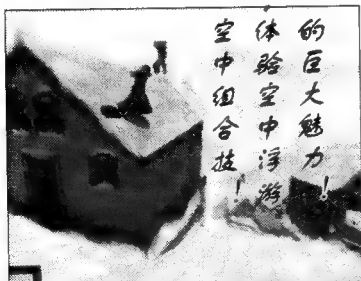 空中组合技！
体验空中浮游
的巨大魅力！